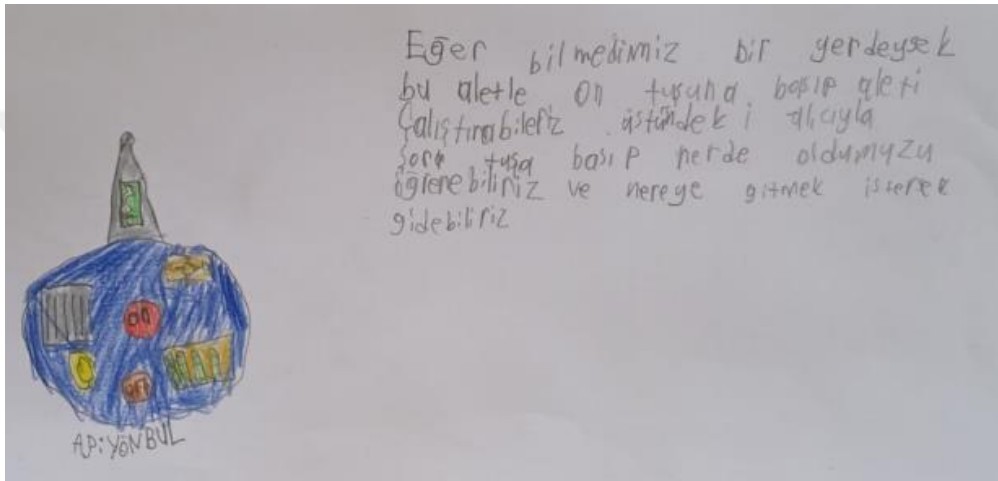 Eğer bilmedimiz bir yerdeysek
bu aletle on tuşuna basıp aleti
Çalıştırabiliriz üstündeki alıcıyla
sora tuşa basıp nerde oldumuzu
öğrenebiliriz ve nereye gitmek istersek
gidebiliriz
on
APİYÖNBUL